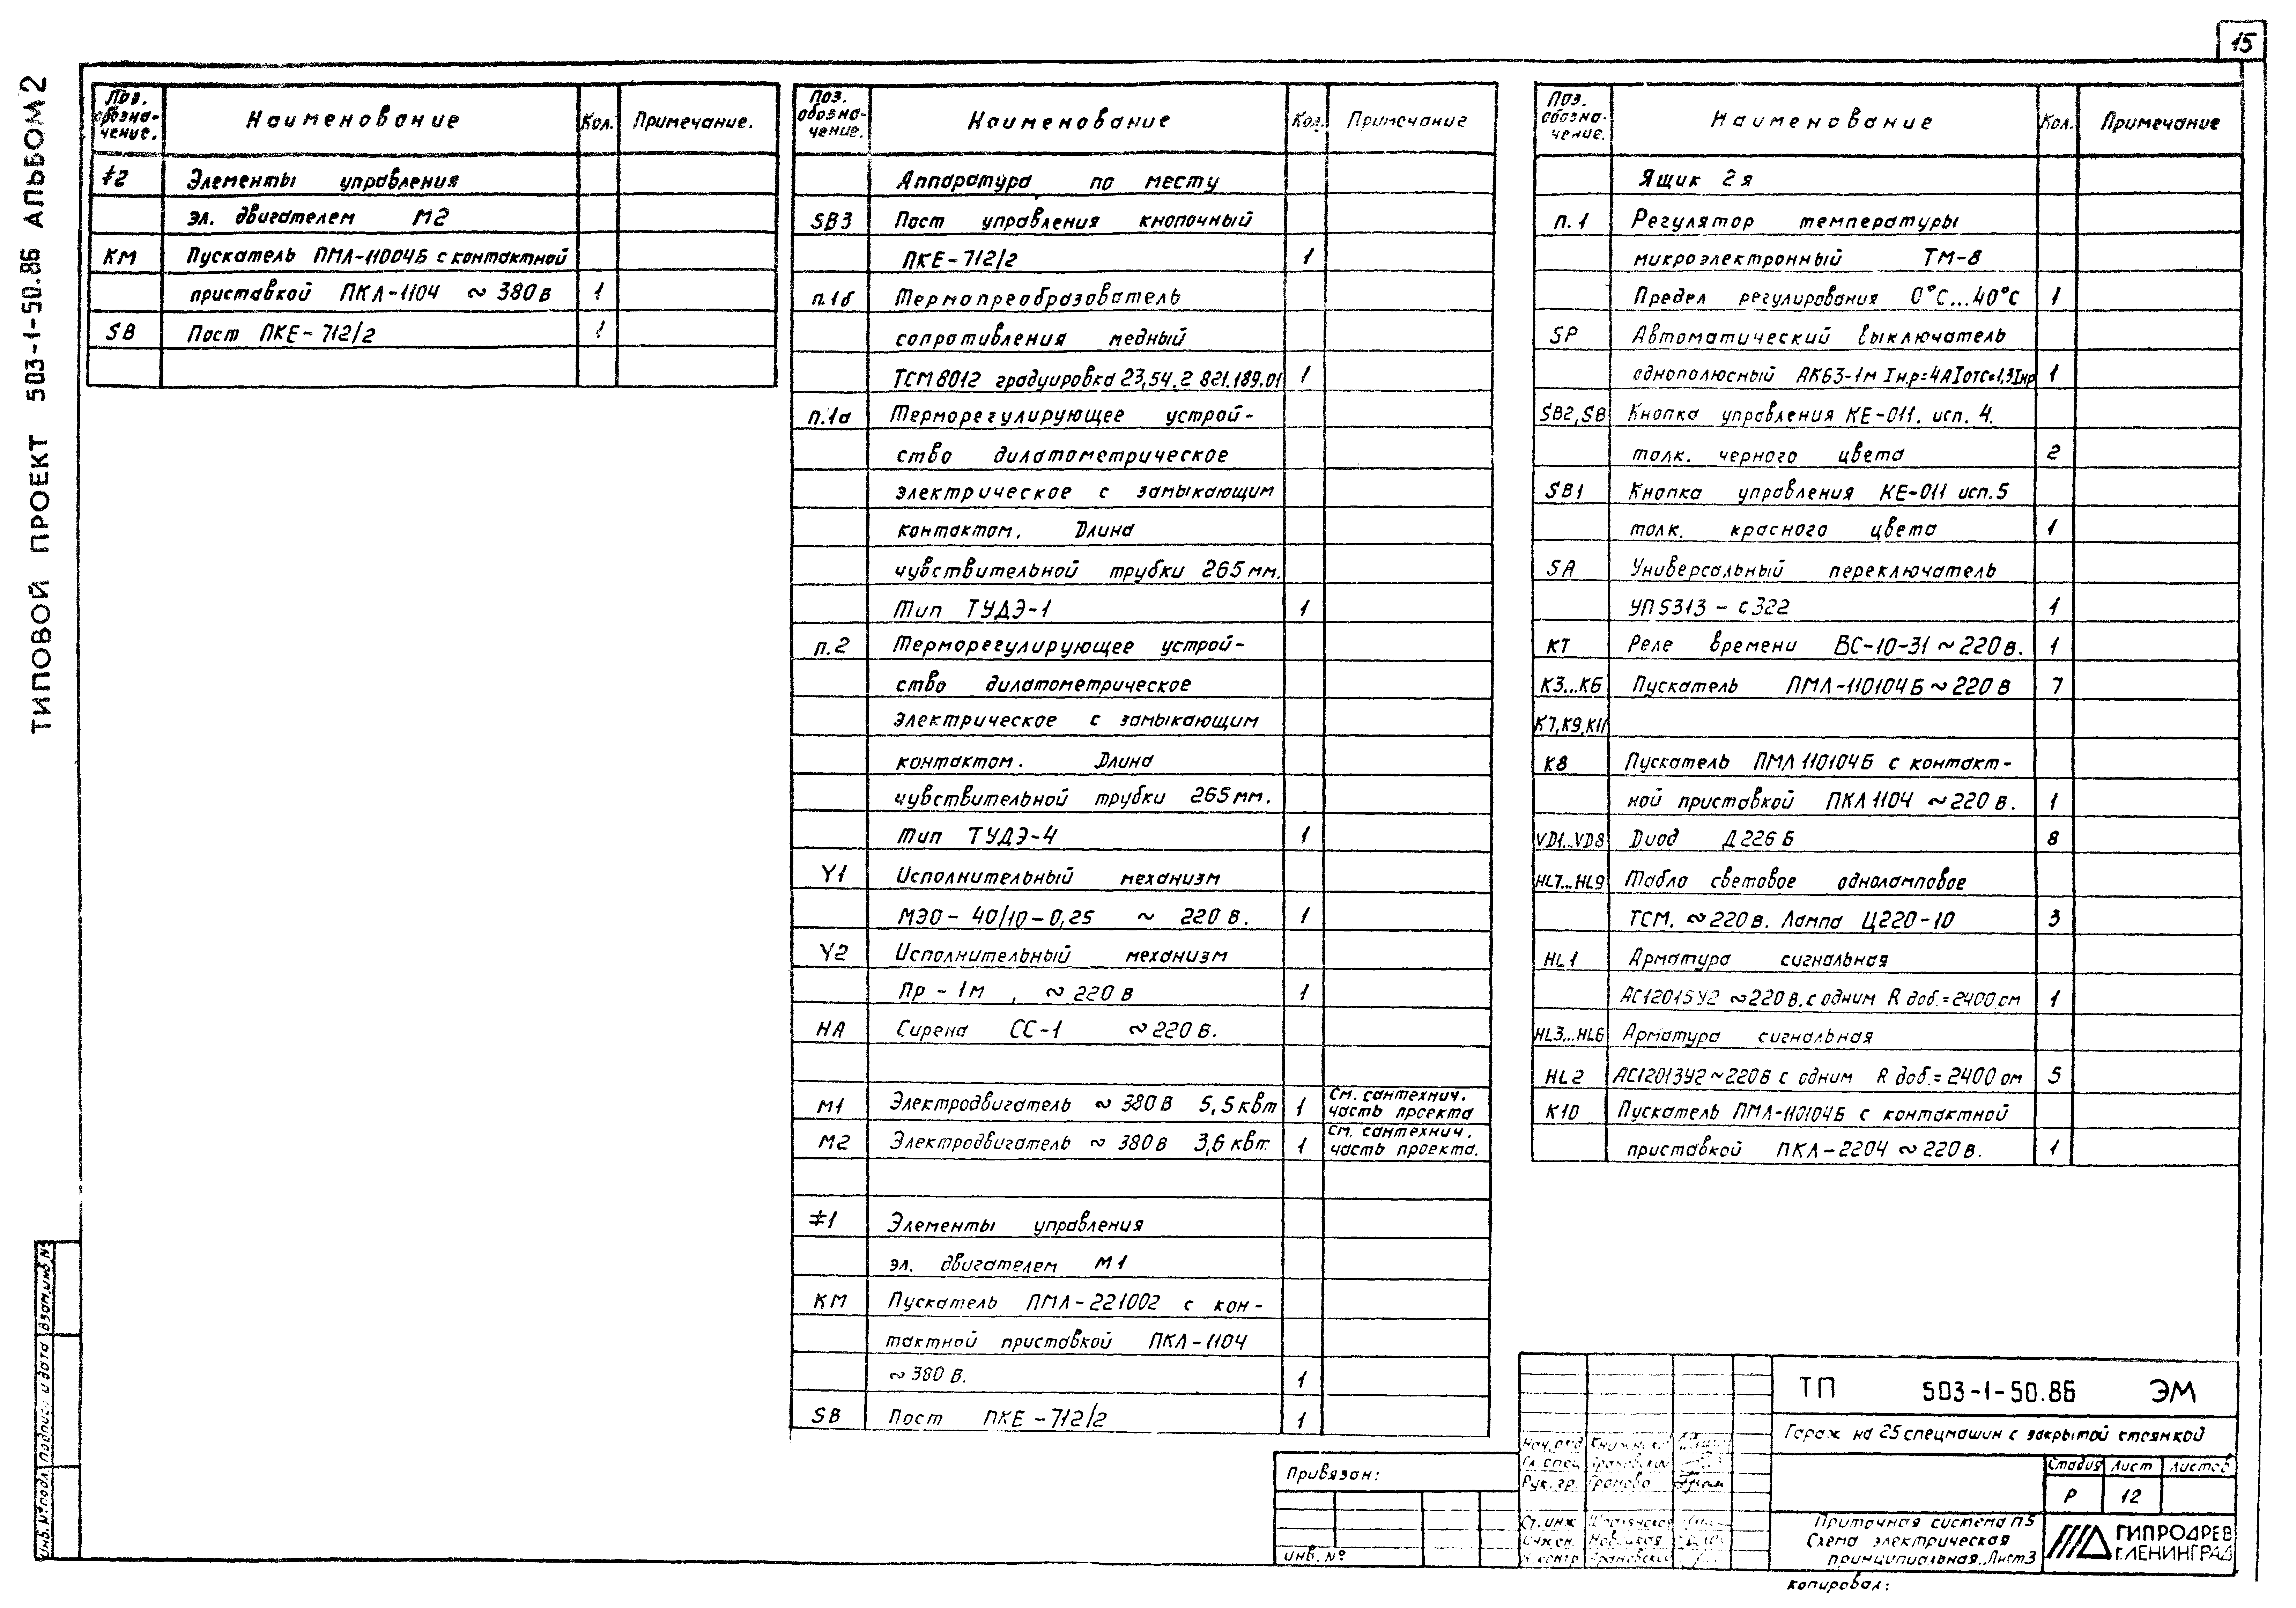 15
ТИПОВОЙ ПРОЕКТ 503-1-50.86 АЛЬБОМ 2
Поз. обозна-чение. Наименование Кол. Примечание.
≠2 Элементы управления
эл. двигателем М2
КМ Пускатель ПМЛ-11004Б с контактной
приставкой ПКЛ-1104 ~ 380 в 1
SB Пост ПКЕ-712/2 1
Поз. обозна-чение. Наименование Кол. Примечание
Аппаратура по месту
SB3 Пост управления кнопочный
ПКЕ-712/2 1
п.1б Термопреобразователь
сопротивления медный
ТСМ 8012 градуировка 23,5Ч.2 821.189.01 1
п.1а Терморегулирующее устрой-
ство дилатометрическое
электрическое с замыкающим
контактом. Длина
чувствительной трубки 265 мм.
Тип ТУДЭ-1 1
п.2 Терморегулирующее устрой-
ство дилатометрическое
электрическое с замыкающим
контактом. Длина
чувствительной трубки 265 мм.
Тип ТУДЭ-4 1
Y1 Исполнительный механизм
МЭО-40/10-0,25 ~ 220 в. 1
Y2 Исполнительный механизм
Пр-1м , ~ 220 в 1
НА Сирена СС-1 ~ 220 в.
М1 Электродвигатель ~ 380 в 5,5 квт 1 См. сантехнич. часть проекта
М2 Электродвигатель ~ 380 в 3,6 квт. 1 См. сантехнич. часть проекта.
≠1 Элементы управления
эл. двигателем М1
КМ Пускатель ПМЛ-221002 с кон-
тактной приставкой ПКЛ-1104
~ 380 в. 1
SB Пост ПКЕ-712/2 1
Поз. обозна-чение. Наименование Кол. Примечание
Ящик 2я
п.1 Регулятор температуры
микроэлектронный ТМ-8
Предел регулирования 0°С...40°С 1
SP Автоматический выключатель
однополюсный АК63-1м Iн.р=4А Iотс=1,3Iнр 1
SB2, SB Кнопка управления КЕ-011. исп. 4.
толк. черного цвета 2
SB1 Кнопка управления КЕ-011 исп.5
толк. красного цвета 1
SA Универсальный переключатель
УП5313-с322 1
КТ Реле времени ВС-10-31 ~ 220 в. 1
К3...К6 Пускатель ПМЛ-110104Б ~ 220 в 7
К7, К9, К11
К8 Пускатель ПМЛ 110104Б с контакт-
ной приставкой ПКЛ 1104 ~ 220 в. 1
VD1...VD8 Диод Д226Б 8
HL7...HL9 Табло световое одноламповое
ТСМ. ~ 220 в. Лампа Ц220-10 3
HL1 Арматура сигнальная
АС12015У2 ~ 220 в. с одним R доб.=2400 ом 1
HL3...HL6 Арматура сигнальная
HL2 АС12013У2 ~ 220 в с одним R доб.= 2400 ом 5
К10 Пускатель ПМЛ-110104Б с контактной
приставкой ПКЛ-2204 ~ 220 в. 1
Инв. № подл. подпись и дата взам.инв.№
Привязан:
инв. №
Нач.отд.
Гл. спец.
Рук. гр. Громова
Ст. инж
Инжен.
Н.контр
ТП 503-1-50.86 ЭМ
Гараж на 25 спецмашин с закрытой стоянкой
Стадия Лист Листов
Р 12
Приточная система П5
Схема электрическая
принципиальная. Лист 3
ГИПРОДРЕВ
Г.ЛЕНИНГРАД
копировал: